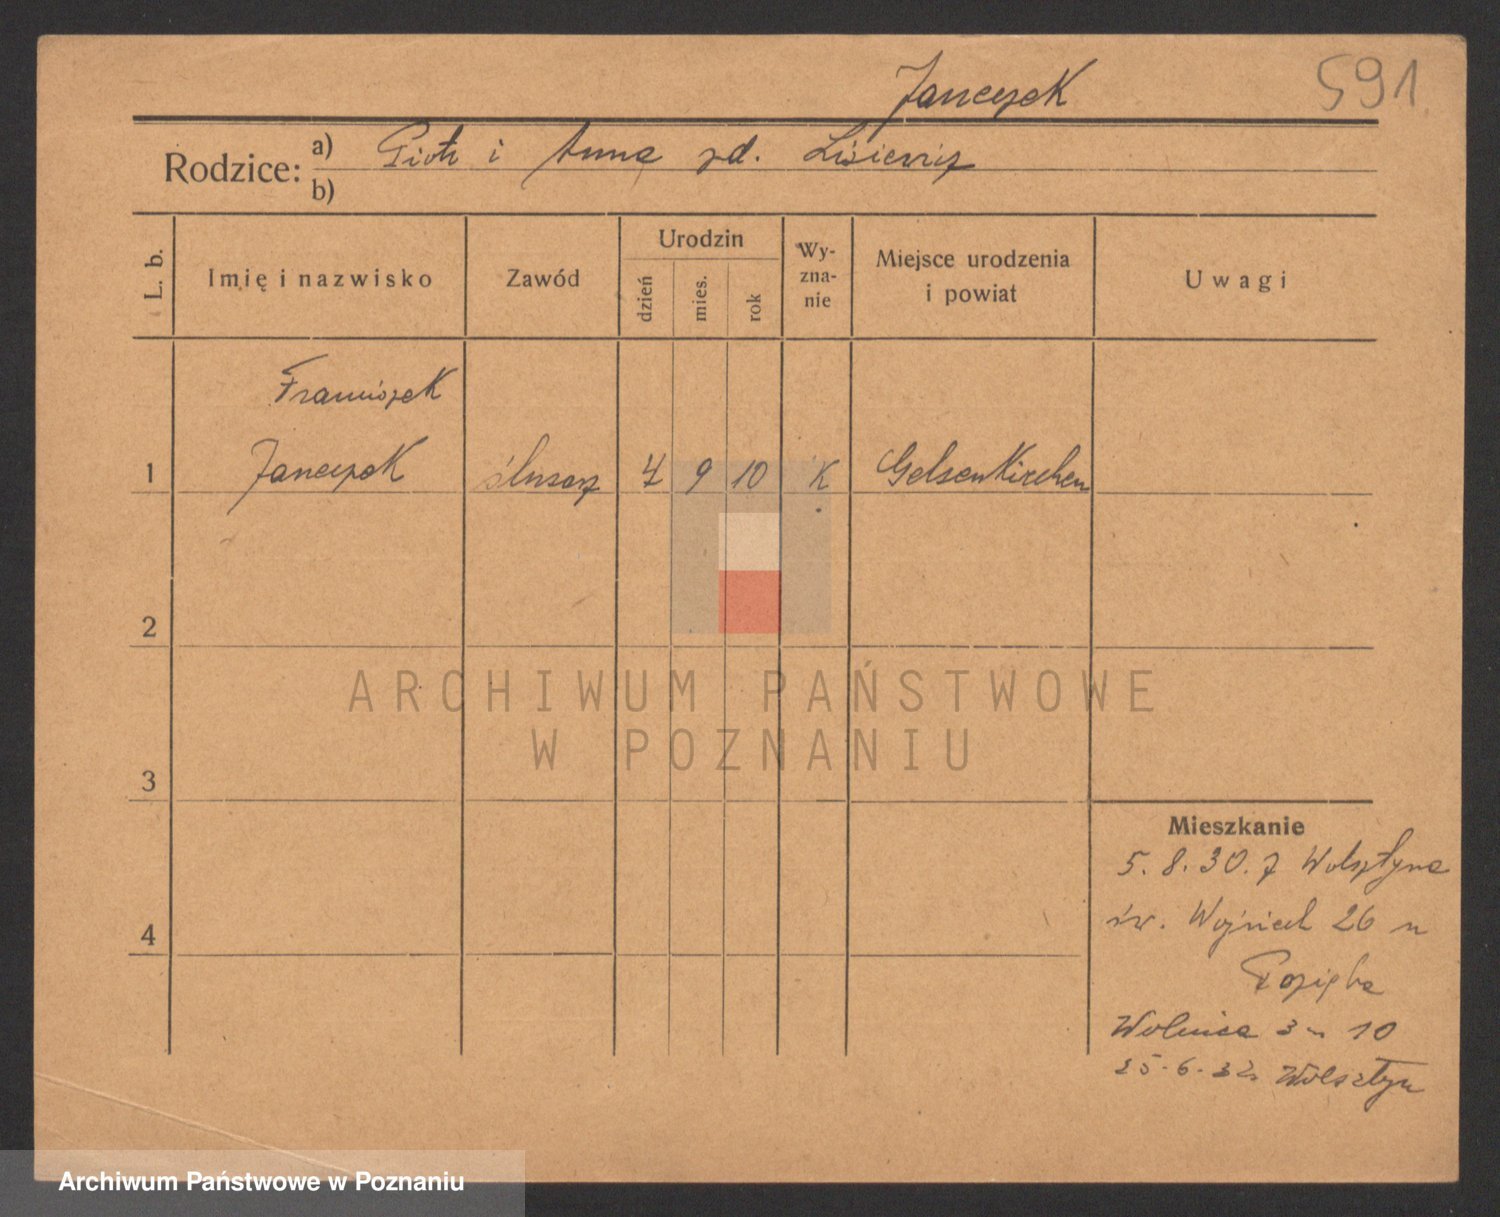 Janczek
591
Rodzice: a) Piotr i Anna zd.
b)
L. b.
Imię i nazwisko
Zawód
Urodzin
dzień
mies.
rok
Wy-
zna-
nie
Miejsce urodzenia
i powiat
Uwagi
Franciszek
1 Janczek ślusarz 4 9 10 K Gelsenkirchen
2
3
4
Mieszkanie
5.8.30. z Wolsztyna
św. Wojciech 26 u
Wolnica 3 10
25.6.32 Wolsztyn
ARCHIWUM PAŃSTWOWE
W POZNANIU
Archiwum Państwowe w Poznaniu